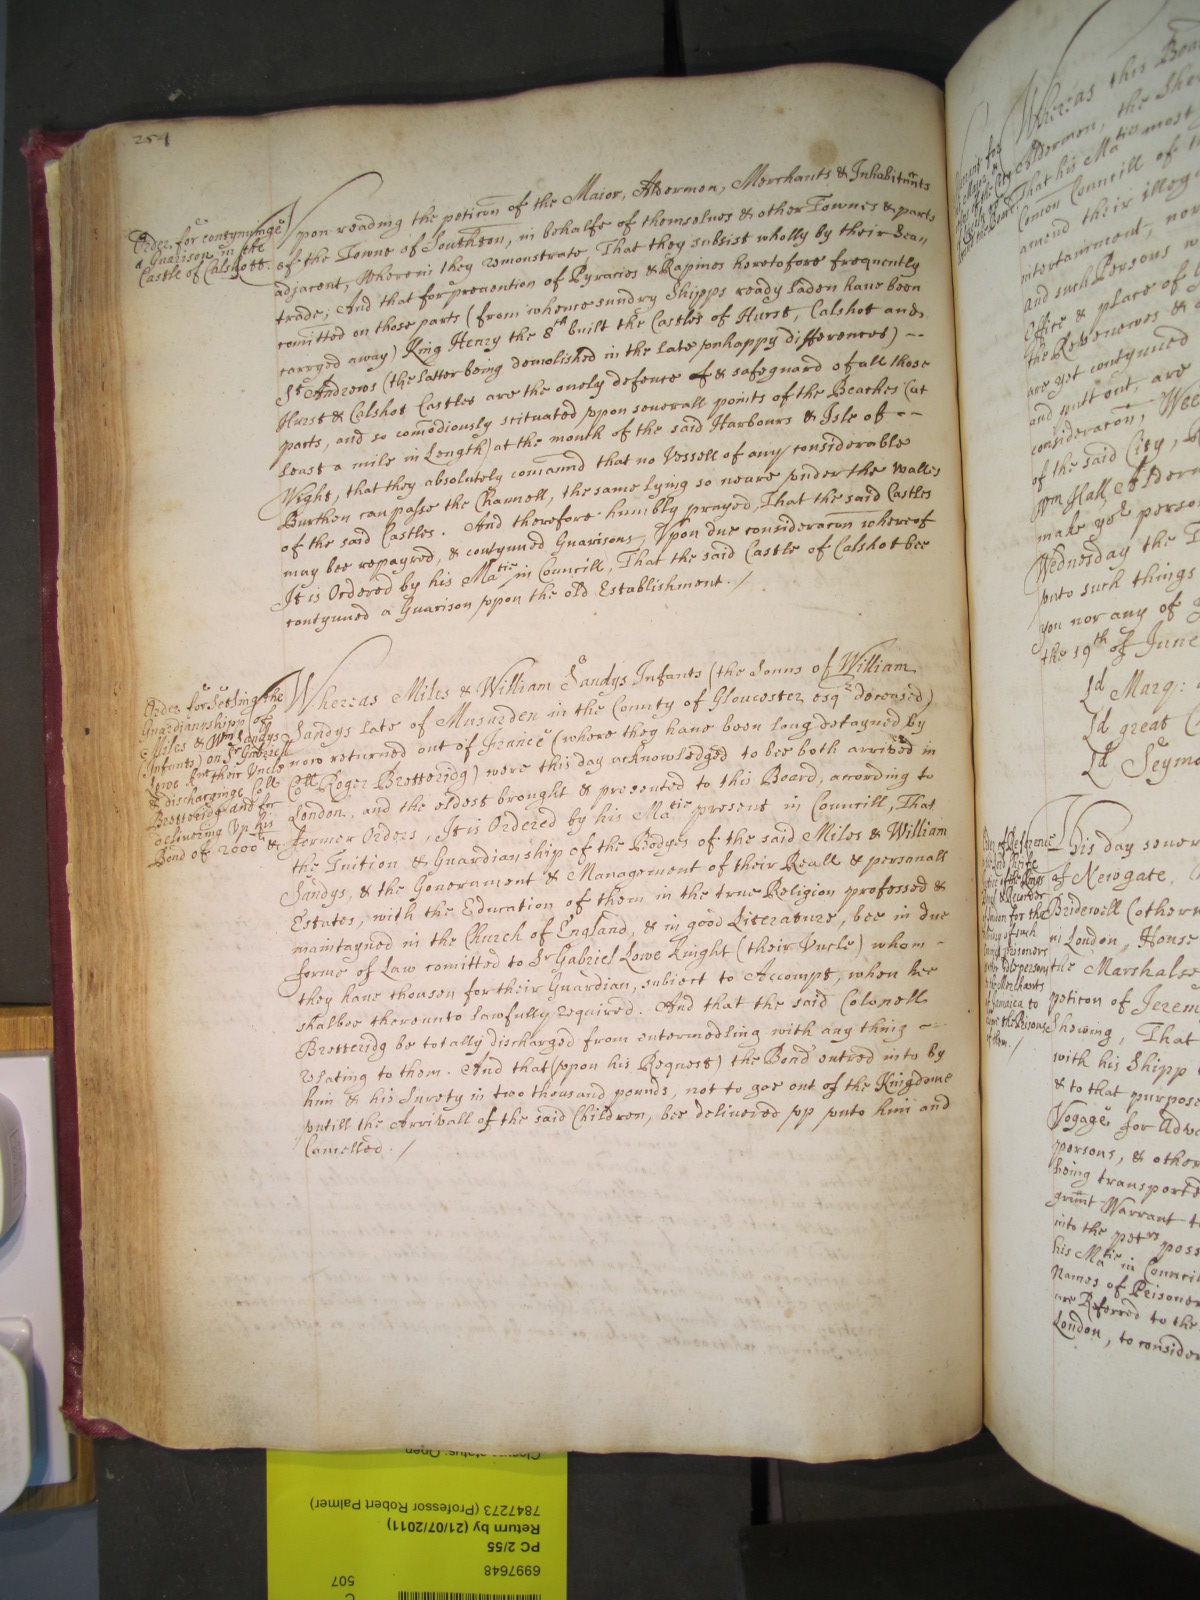 254
Order for contynuinge
a Guarison in the
Castle of Calshott.
Vpon reading the peticõn of the Maior, Aldermen, Merchants & Inhabitãnts
of the Towne of Southton, in behalfe of themselues & other Townes & parts
adjacent, Wherein they remonstrate, That they subsist wholly by their Sean
trade; And that for preuention of Pyracies & Rapines heretofore frequently
comitted on those parts (from whence sundry Shipps ready laden haue been
carryed away) King Henry the 8th built the Castles of Hurst, Calshot and
St Andrews (the latter being demolished in the late vnhappy differences)
Hurst & Calshot Castles are the onely defence of & safeguard of all those
parts, and so comodiously scituated vpon seuerall points of the Beaches (at
least a mile in Length) at the mouth of the said Harbours & Isle of
Wight, that they absolutely comannd that no Vessell of any considerable
Burthen can passe the Channell, the same lying so neare vnder the walles
of the said Castles. And therefore humbly prayed, That the said Castles
may bee repayred, & contynued Guarisons, Vpon due consideracõn whereof
It is Ordered by his Matie in Councill, That the said Castle of Calshot bee
contynued a Guarison vpon the old Establishment. /
Order for setling the
Guardianshipp of
Miles & Wm Sandys
(Infants) on Sr Gabriell
Lowe Knt their Vncle
& discharginge Coll
Bretteridg and for
delivering Vp his
Bond of 2000li &c
Whereas Miles & William Sandys Infants (the Sonns of William
Sandys late of Misarden in the County of Gloucester esqr deceased)
now returned out of France (where they haue been long detayned by
Coll Roger Bretteridg) were this day acknowledged to bee both arrived in
London, and the eldest brought & presented to this Board, according to
former Orders, It is Ordered by his Matie present in Councill, That
the Tuition & Guardianship of the Bodyes of the said Miles & William
Sandys, & the Gouernment & Management of their Reall & personall
Estates, with the Education of them in the true Religion professed &
maintayned in the Church of England, & in good Literature, bee in due
forme of Law comitted to Sr Gabriel Lowe Knight (their Vncle) whom
they haue chousen for their Guardian, subiect to Accompt, when hee
shalbee thereunto lawfully required. And that the said Colonell
Bretteridg be totally discharged from entermedling with any thing
relating to them. And that (vpon his Request) the Bond entred into by
him & his Surety in two thousand pounds, not to goe out of the Kingdome
vntill the Arrivall of the said Children, bee deliuered vp vnto him and
Cancelled. /
Whereas this Boa
Aldermen, the She
That his Maties most
Comon Councill of t
amend their illega
intertainment, now
and such Persons w
Office & place of
the Revenewes & 
are yet contynued
and putt out, are
consideracõn, Wee
of the said City,
Wm Hall, Alderm
make yor perso
Wednesday the
vnto such things
you nor any of
the 19th of June
Ld Marq:
Ld great C
Ld Seymo
This day sever
of Newgate,
Bridewell (otherw
in London, House
the Marshalse
peticon of Jerem
Shewing, That
with his Shipp
& to that purpose
Voyage for Adva
persons, & other
being transporte
grãnt Warrant t
into the petrs poss
his Matie in Councill
Names of Prisoner
are Referred to the
London, to consider
Closure status: Open
7847273 (Professor Robert Palmer)
Return by (21/07/2011)
PC 2/55
6997648
507